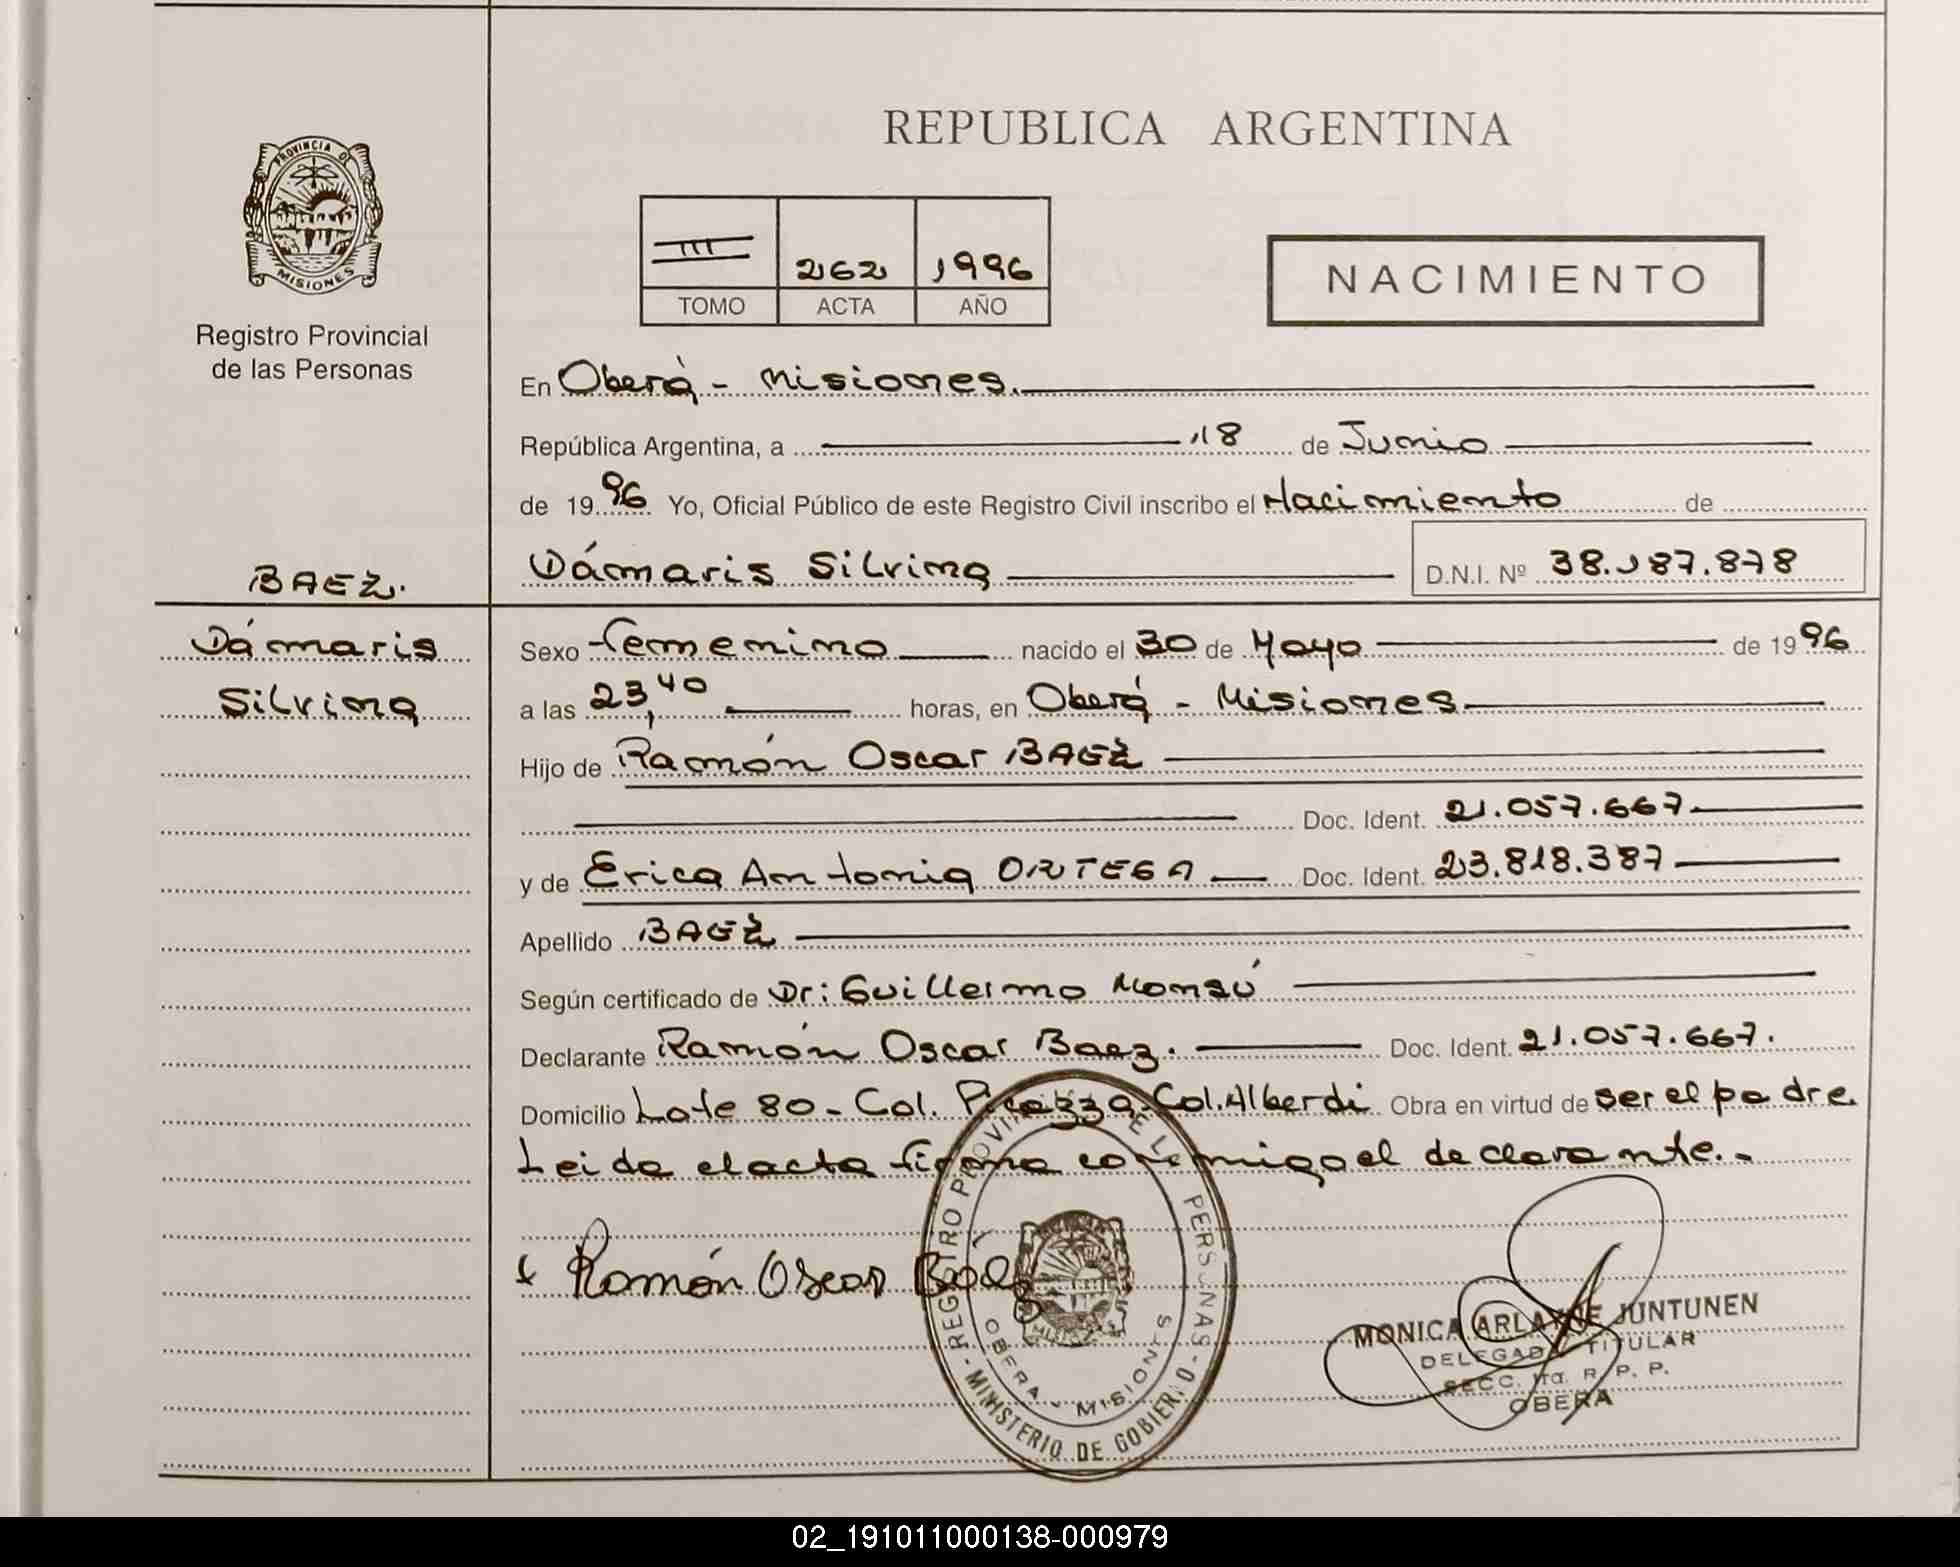 REPUBLICA ARGENTINA
PROVINCIA DE
MISIONES
Registro Provincial
de las Personas
III 262 1996
TOMO ACTA AÑO
NACIMIENTO
En Oberá - Misiones.
República Argentina, a 18 de Junio
de 1996 Yo, Oficial Público de este Registro Civil inscribo el Nacimiento de
BAEZ.
Dámaris Silvina D.N.I. Nº 38.187.878
Dámaris
Silvina
Sexo femenino nacido el 30 de Mayo de 1996
a las 23,40 horas, en Oberá - Misiones
Hijo de Ramón Oscar BAEZ
Doc. Ident. 21.057.667
y de Erica Antonia ORTEGA Doc. Ident. 23.818.387
Apellido BAEZ
Según certificado de Dr: Guillermo Monzú
Declarante Ramón Oscar Baez. Doc. Ident. 21.057.667.
Domicilio Lote 80 - Col. Picazza - Col. Alberdi Obra en virtud de ser el padre.
Leida el acta firma conmigo el declarante. -
x Ramón Oscar Baez
- REGISTRO PROVINCIAL DE LAS PERSONAS -
MINISTERIO DE GOBIERNO
OBERA - MISIONES
MONICA ARLAYNE JUNTUNEN
DELEGADA TITULAR
SECC. 1ra. R. P. P.
OBERA
02_191011000138-000979